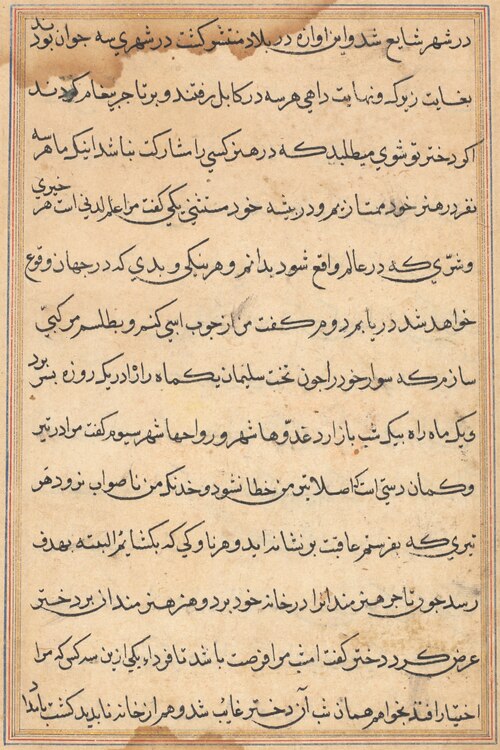 در شهر شایع شد و این اوازه در بلاد منتشر گشت در شهری سه جوان بودند
بغایت زیرک و نهایت داهی هر سه در کابل رفتند و بر تاجر پیغام کردند
اکر دختر تو شوی میطلبد که در هنر کسی را مشارکت نباشد اینک ما هر سه
نفر در هنر خود ممتازیم و در پیشه خود مستثنی یکی گفت مرا علم لدنی است هر خیری
و شری که در عالم واقع شود بدانم و هر نیکی و بدی که در جهان وقوع
خواهد شد دریابم دوم گفت من از چوب اسپی کنم و بطلسم مرکبی
سازم که سوار خود را چون تخت سلیمان یکماه راه را در یک روزه بسر برد
و یک ماه راه بیک شب باز ارد غدوها شهر و رواحها شهر سیوم گفت مرا در تیر
و کمان دستی است که اصلا تیر من خطا نشود و خدنک من ناصواب نرود هر
تیری که بفرستم عاقبت بر نشانه اید و هر ناوکی که بکشایم البته بهدف
رسد چون تاجر هنرمندانرا در خانه خود برد و هنر هنرمندان بر دختر
عرض کرد دختر گفت امشب مرا فرصت باشد تا فردا یکی ازین سه کس که مرا
اختیار افتد بخواهم همان شب آن دختر غایب شد و هم از خانه ناپدید کشت بامدا